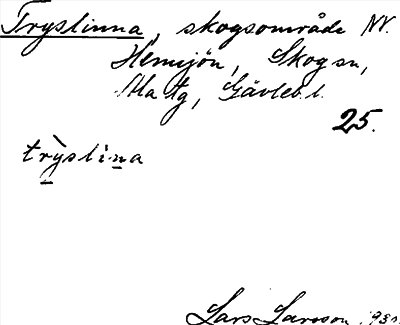 Tryslinna, skogsområde NV.
Hemsjön, Skogsn,
Ala tg, Gävleb.l.
25.
trỳslina
Lars Larsson